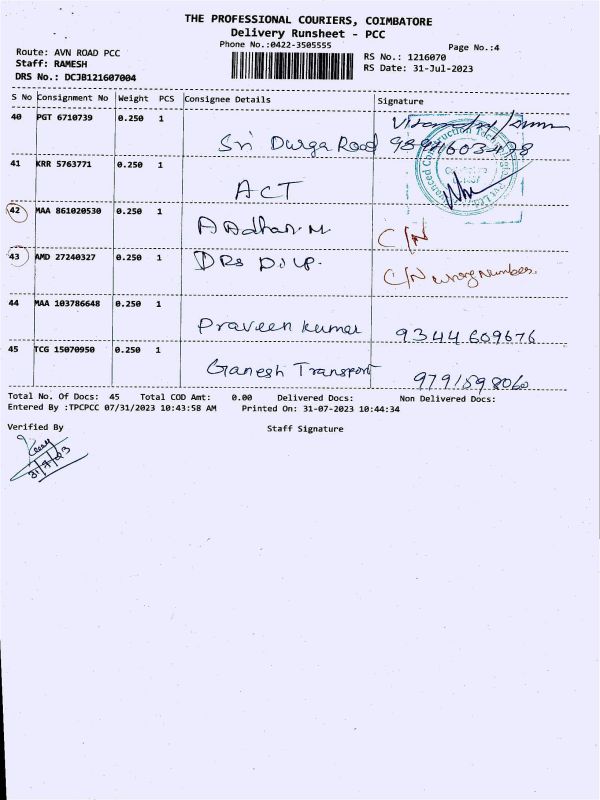 THE PROFESSIONAL COURIERS, COIMBATORE
Delivery Runsheet - PCC
Phone No.:0422-3505555
Page No.:4
Route: AVN ROAD PCC
Staff: RAMESH
DRS No.: DCJB121607004
RS No.: 1216070
RS Date: 31-Jul-2023
S No Consignment No Weight PCS Consignee Details Signature
40 PGT 6710739 0.250 1
Sri Durga Road
41 KRR 5763771 0.250 1
ACT
42 MAA 861020530 0.250 1 AAdhar.M C/N
43 AMD 27240327 0.250 1 DRs C/N wrong Number.
44 MAA 103786648 0.250 1
Praveen kumar 9344609676
45 TCG 15070950 0.250 1
Ganesh Transport 9791598060
Total No. Of Docs: 45 Total COD Amt: 0.00 Delivered Docs: Non Delivered Docs:
Entered By :TPCPCC 07/31/2023 10:43:58 AM Printed On: 31-07-2023 10:44:34
Verified By Staff Signature
31/7/23